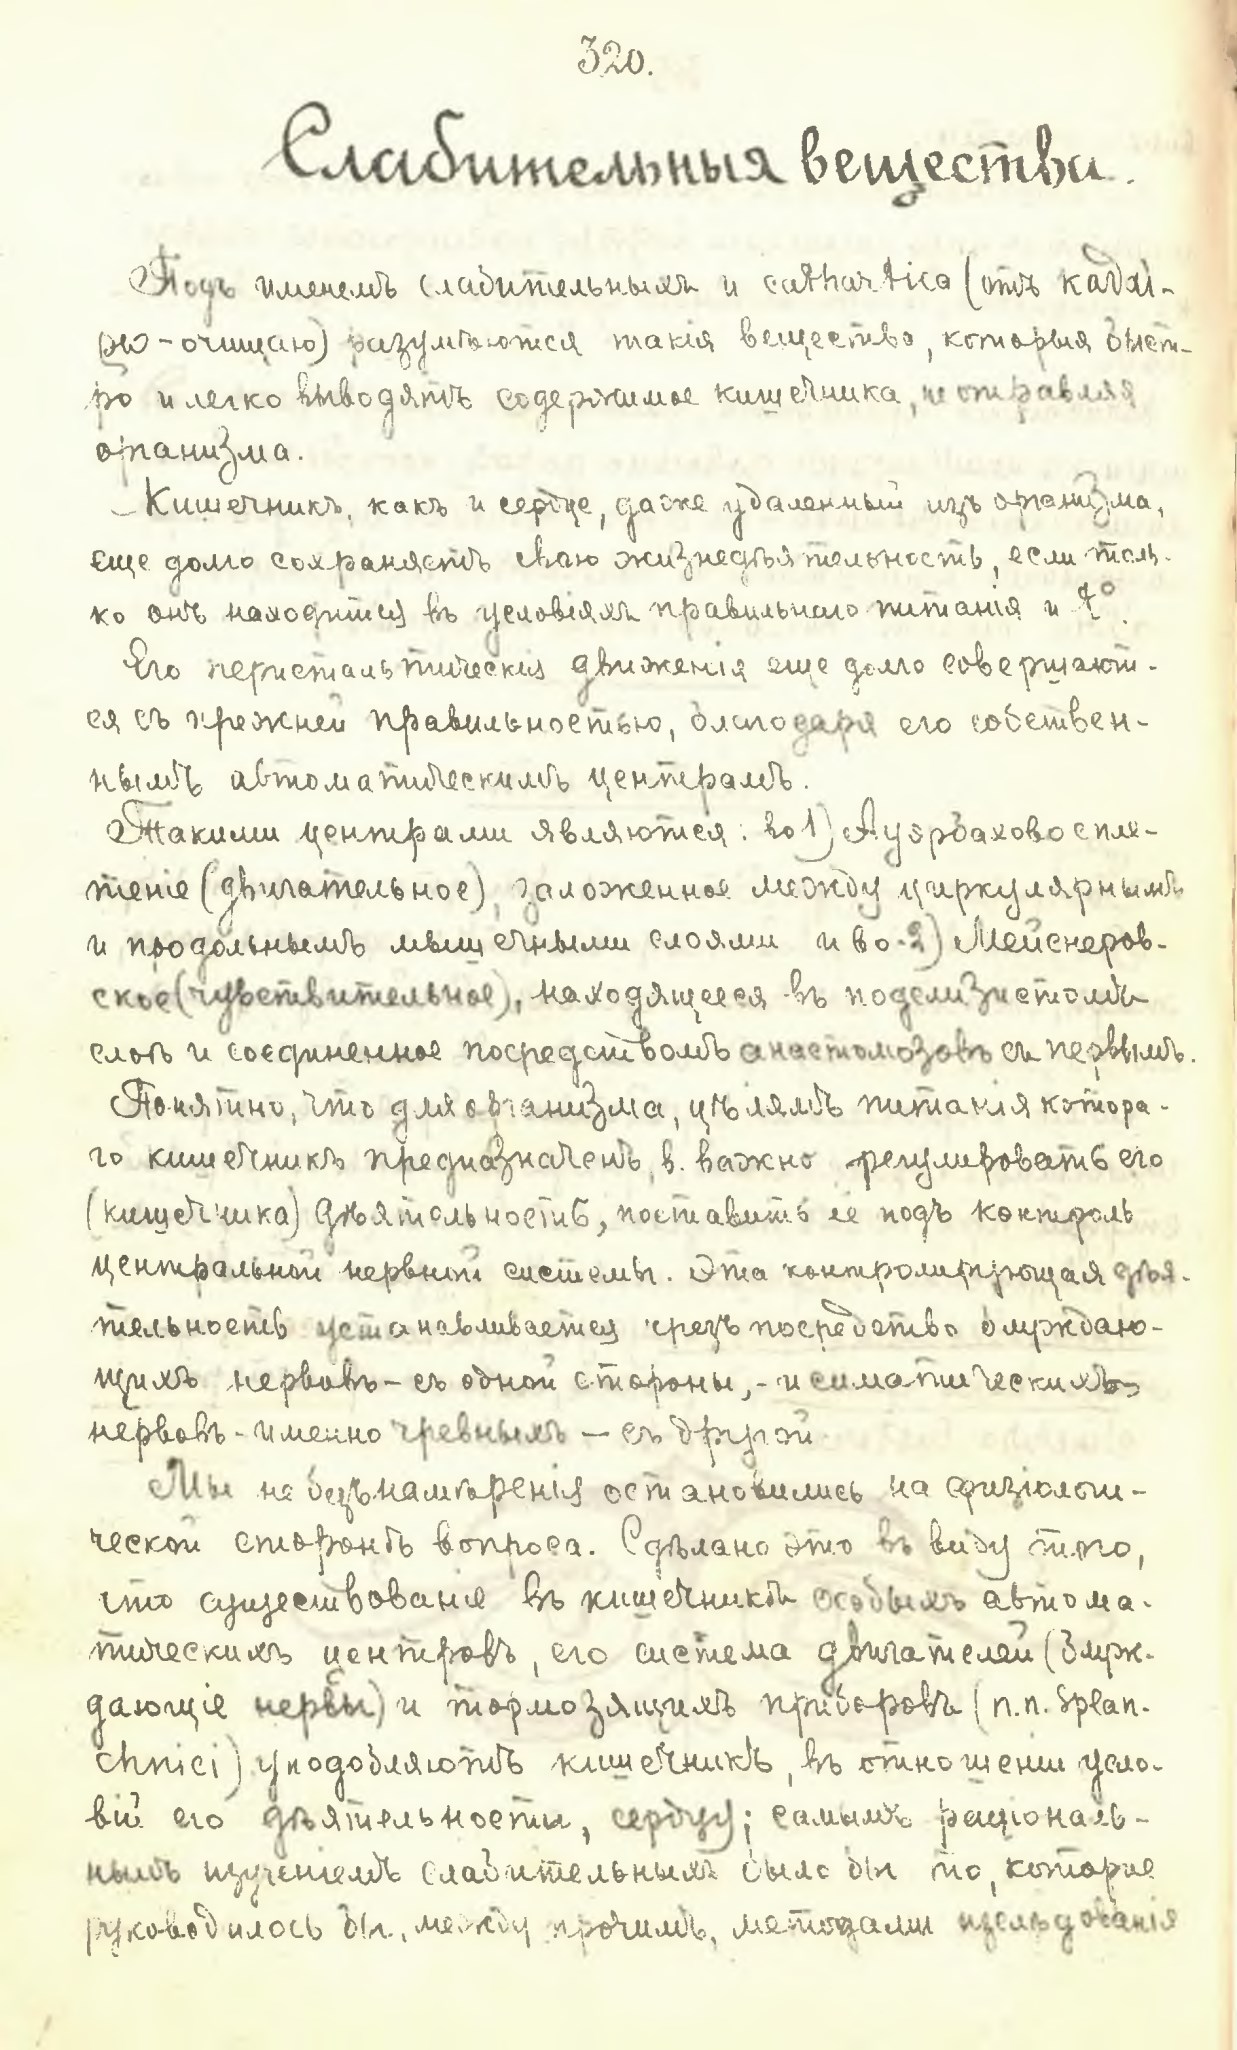 320.
Слабительныя вещества.
Подъ именемъ слабительныхъ и cathartica (отъ καϑαί-
ρω - очищаю) разумѣются такія вещества, которыя быст-
ро и легко выводятъ содержимое кишечника, не отравляя
организма.
Кишечникъ, какъ и сердце, даже удаленный изъ организма,
еще долго сохраняетъ свою жизнедѣятельность, если толь-
ко онъ находится въ условіяхъ правильнаго питанія и t°.
Его перистальтическія движенія еще долго совершают-
ся съ прежней правильностью, благодаря его собствен-
нымъ автоматическимъ центрамъ.
Такими центрами являются: во 1) Ауэрбахово спле-
теніе (двигательное), заложенное между циркулярнымъ
и продольнымъ мышечными слоями и во-2) Мейснеров-
ское (чувствительное), находящееся въ подслизистомъ
слоѣ и соединенное посредствомъ анастомозовъ съ первымъ.
Понятно, что для организма, цѣлямъ питанія котора-
го кишечникъ предназначенъ, в. важно регулировать его
(кишечника) дѣятельность, поставить ее подъ контроль
центральной нервной системы. Эта контролирующая дѣя-
тельность устанавливается чрезъ посредство блуждаю-
щихъ нервовъ - съ одной стороны, - и симпатическихъ
нервовъ - именно чревныхъ — съ другой
Мы не безъ намѣренія остановились на физіологи-
ческой сторонѣ вопроса. Сдѣлано это въ виду того,
что существованіе въ кишечникѣ особыхъ автома-
тическихъ центровъ, его система двигателей (блуж-
дающіе нервы) и тормозящихъ приборовъ (n.n. Splan-
chnici) уподобляютъ кишечникъ, въ отношеніи усло-
вій его дѣятельности, сердцу; самымъ раціональ-
нымъ изученіемъ слабительныхъ было бы то, которое
руководилось бы, между прочимъ, методами изслѣдованія